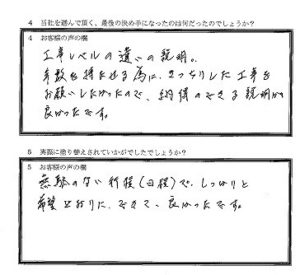 4 当社を選んで頂く、最後の決め手になったのは何だったのでしょうか？
4 お客様の声の欄
工事レベルの違いの説明。
年数を持たせる為に、きっちりした工事を
お願いしたかったので、納得のできる説明が
良かったです。
5 実際に塗り替えされていかがでしたでしょうか？
5 お客様の声の欄
無駄のない行程（日程）で、しっかりと
希望どおりに、できて、良かったです。